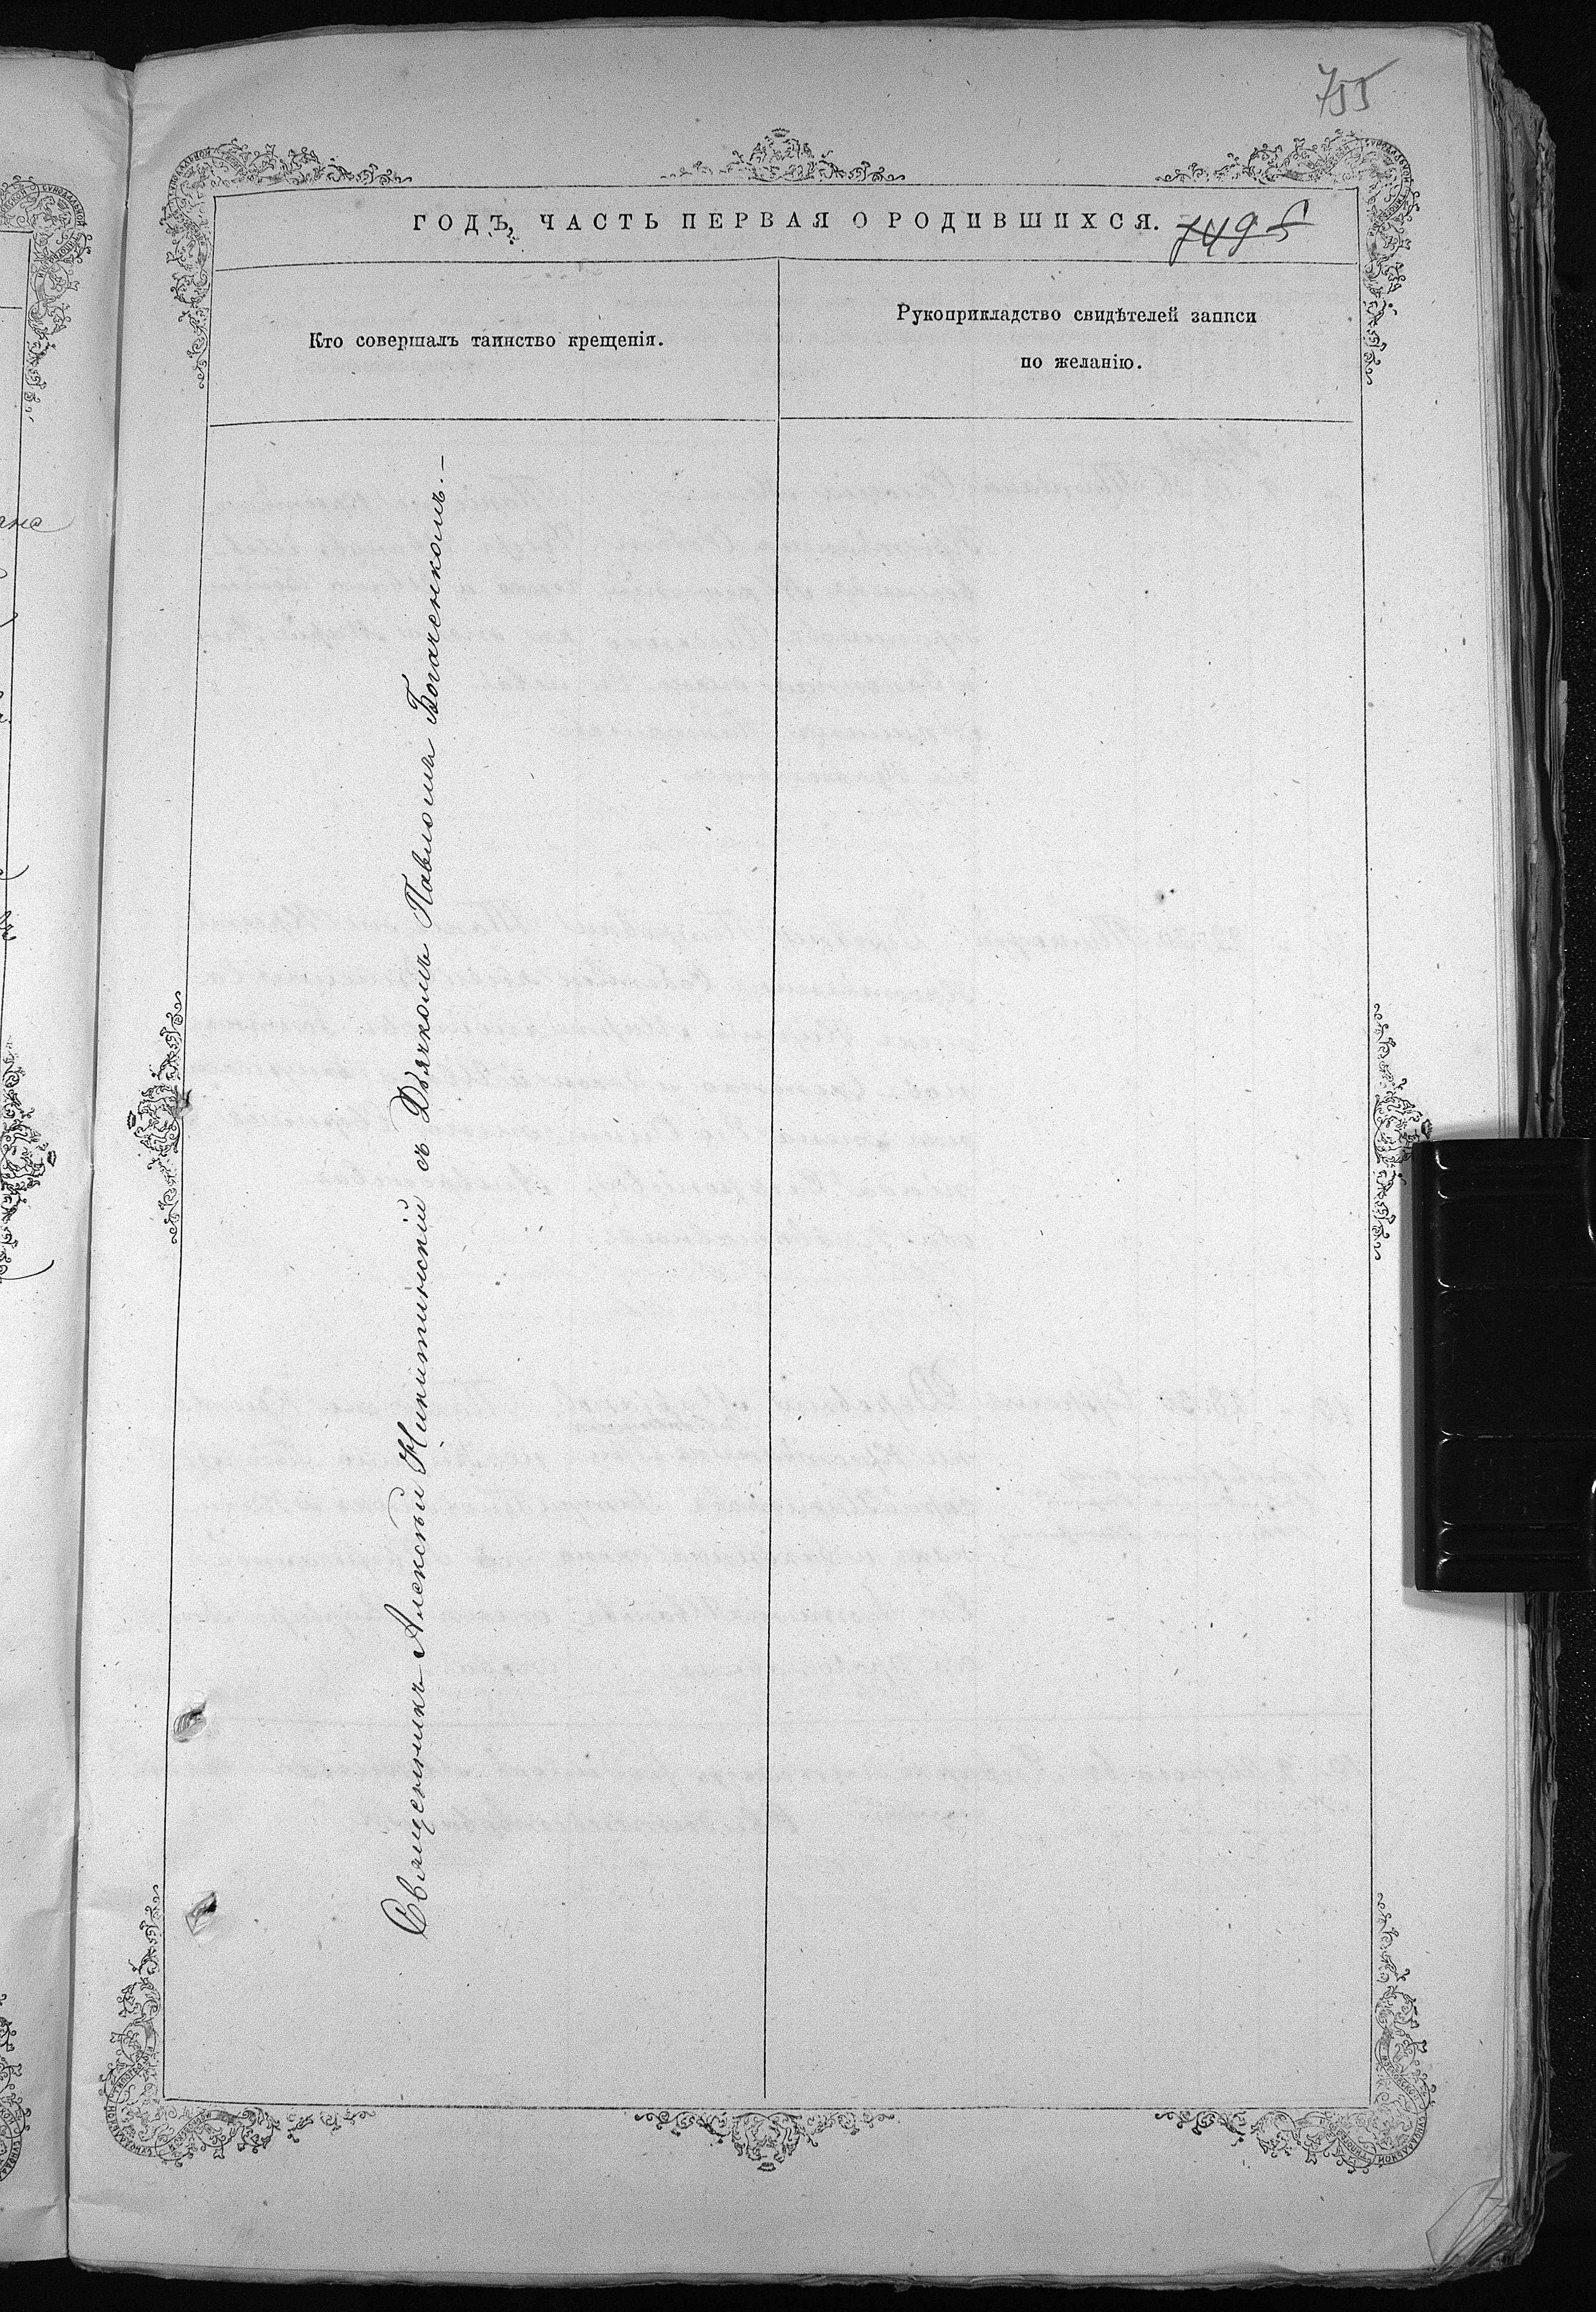 755
ГОДЪ, ЧАСТЬ ПЕРВАЯ О РОДИВШИХСЯ. 749
Кто совершалъ таинство крещенія.
Рукоприкладство свидѣтелей записи
по желанію.
Священникъ Алексѣй Никитинскій съ Дьячкомъ Павломъ Богаченкомъ.—